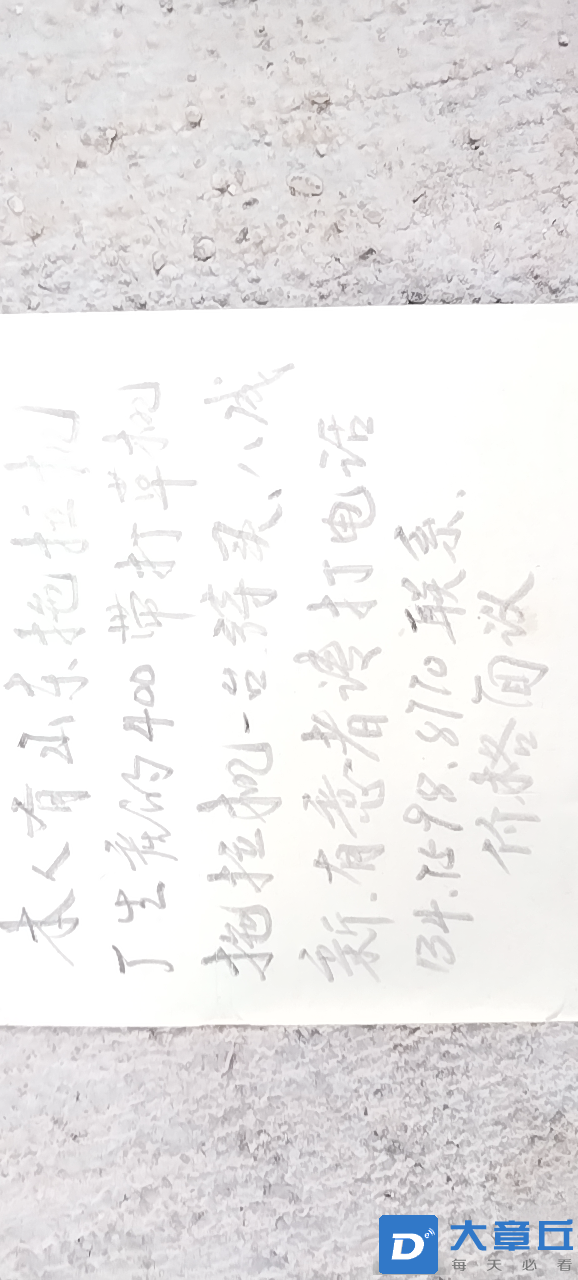 本人有山东拖拉机
厂生产的400带打草机
拖拉机一台转买、八成
新.有意者请打电话
134.7598.8770联系.
价格面议
大章丘
每天必看